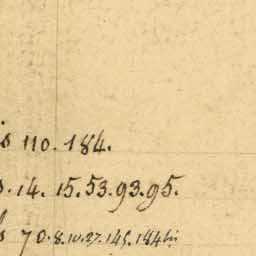 is 110. 184.
s. 14. 15. 53. 93. 95.
s 70. 8. 10. 27. 145. 184 bis